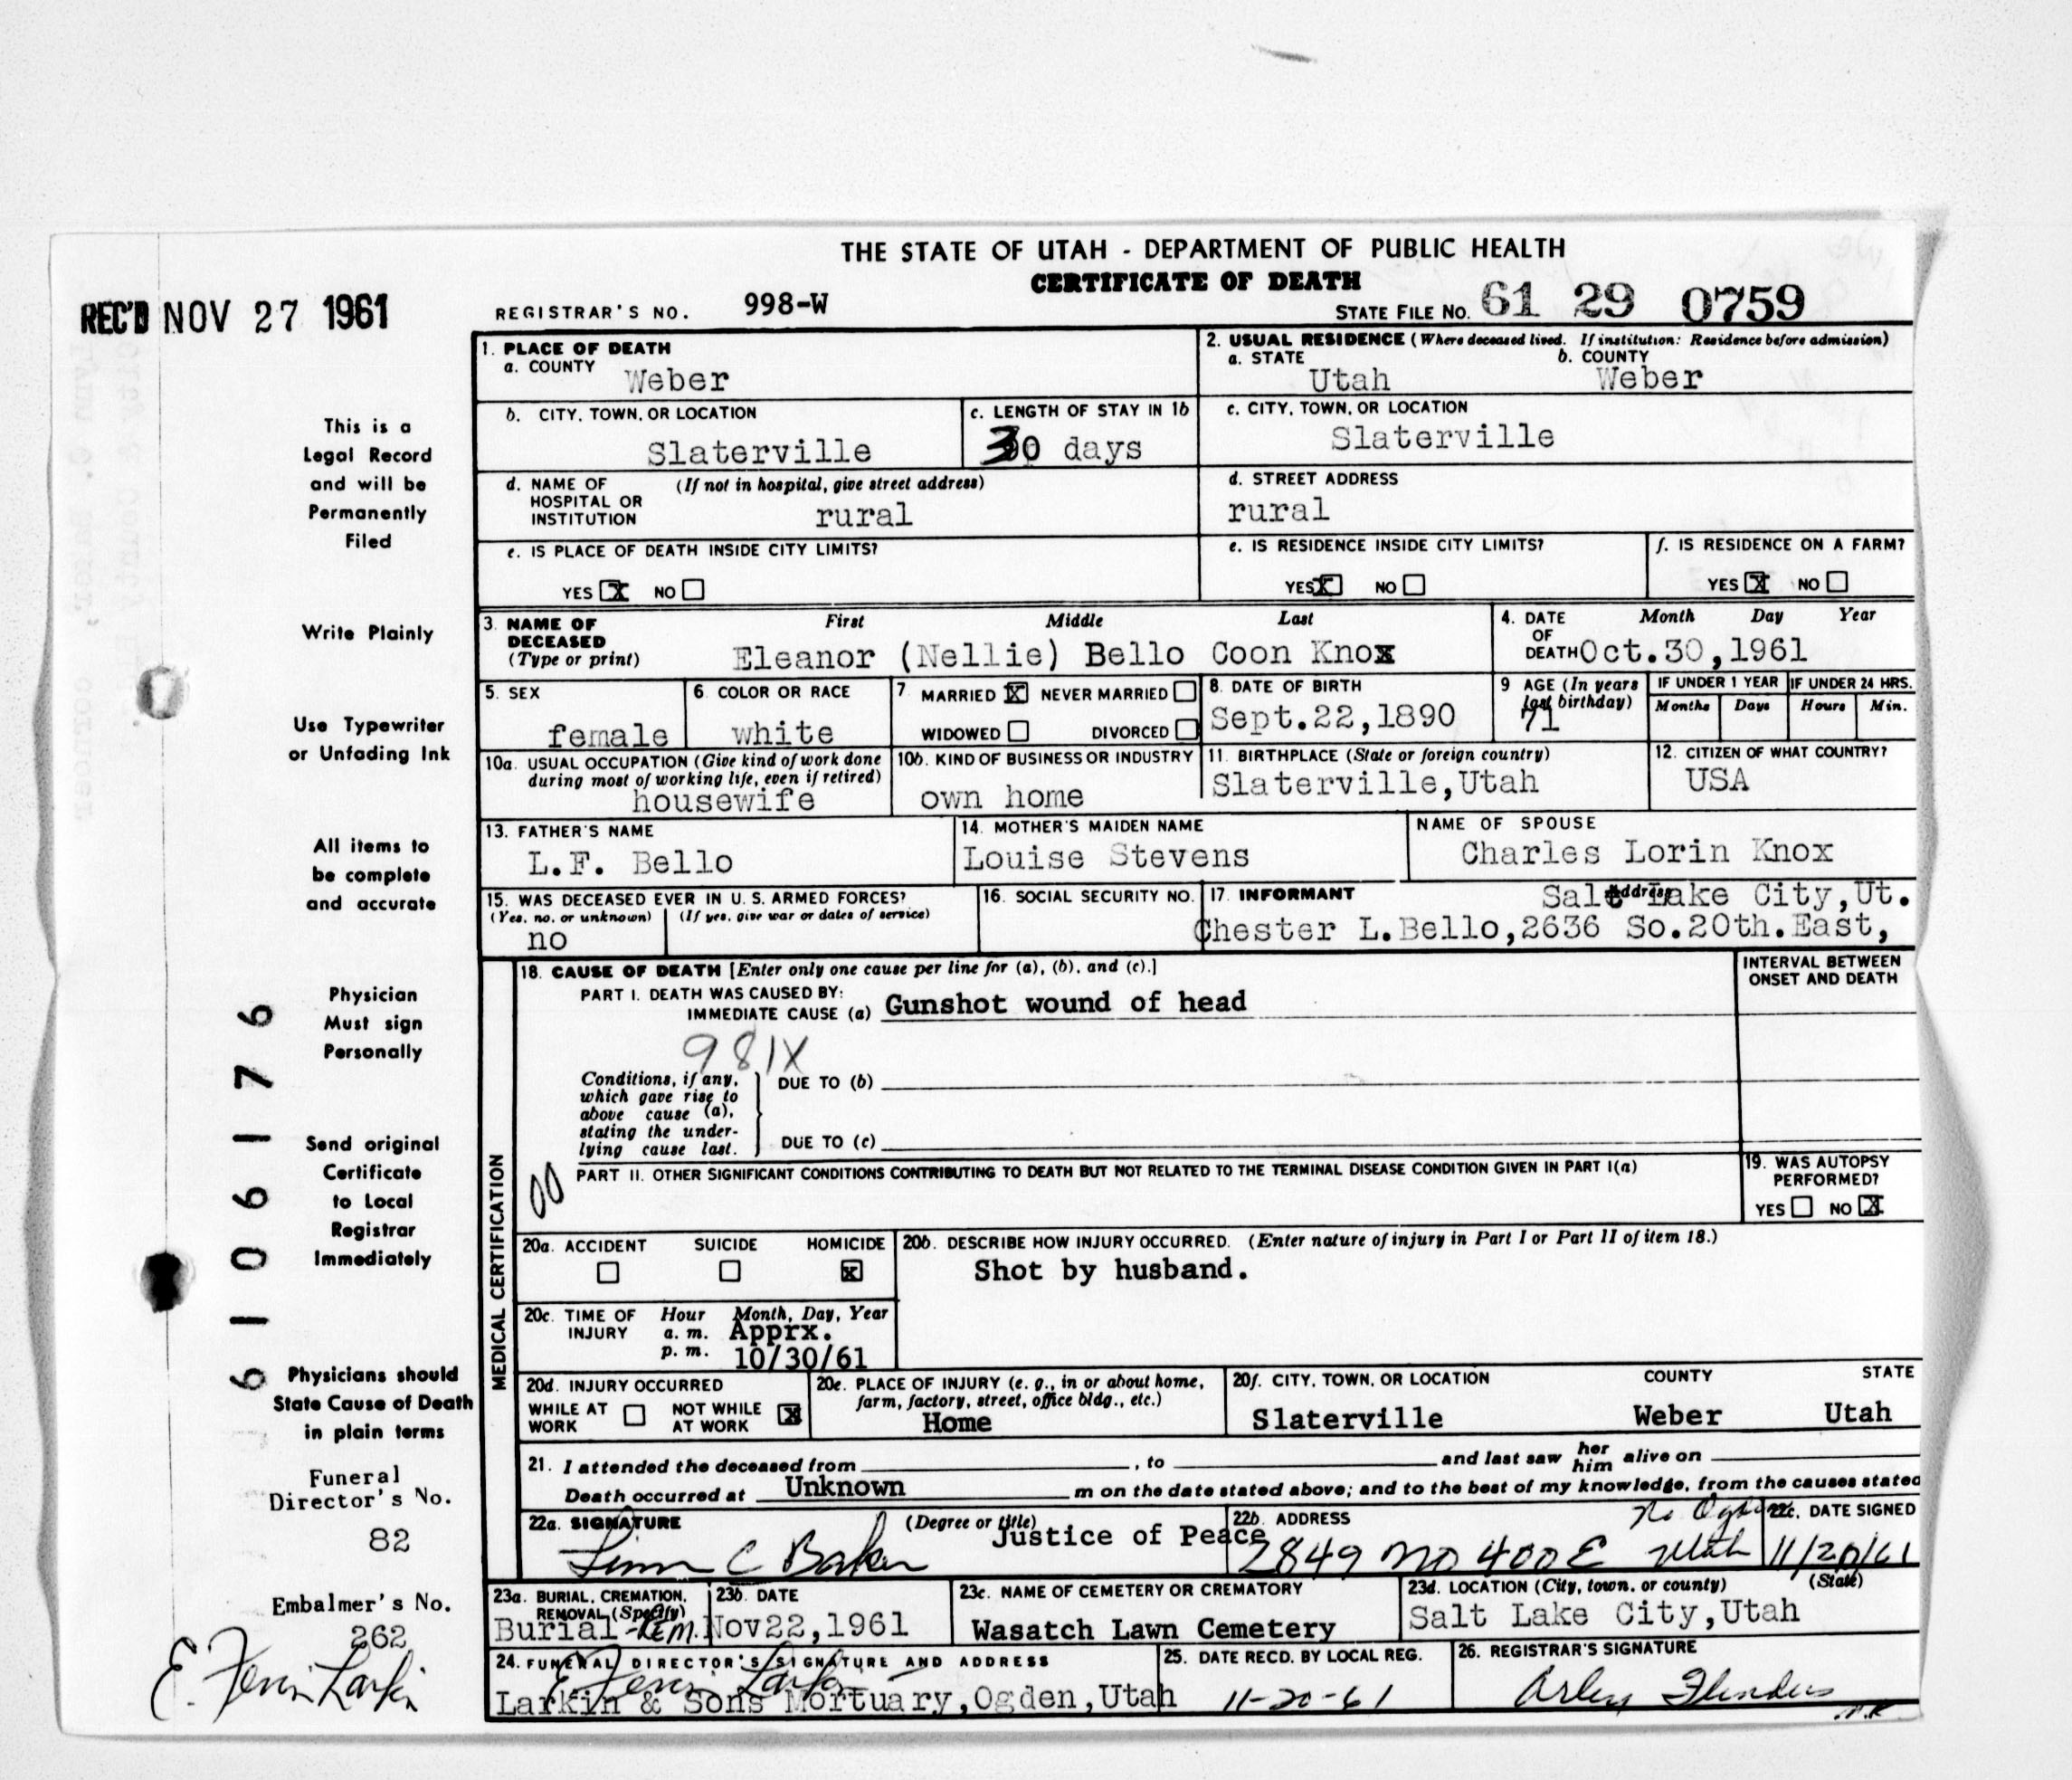 THE STATE OF UTAH - DEPARTMENT OF PUBLIC HEALTH
CERTIFICATE OF DEATH
REC'D NOV 27 1961
REGISTRAR'S NO. 998-W
STATE FILE NO. 61 29 0759
1. PLACE OF DEATH
a. COUNTY Weber
2. USUAL RESIDENCE (Where deceased lived. If institution: Residence before admission)
a. STATE Utah b. COUNTY Weber
b. CITY, TOWN, OR LOCATION Slaterville
c. LENGTH OF STAY IN 1b 30 days
c. CITY, TOWN, OR LOCATION Slaterville
d. NAME OF HOSPITAL OR INSTITUTION (If not in hospital, give street address) rural
d. STREET ADDRESS rural
e. IS PLACE OF DEATH INSIDE CITY LIMITS?
YES X NO
e. IS RESIDENCE INSIDE CITY LIMITS?
YES X NO
f. IS RESIDENCE ON A FARM?
YES X NO
3. NAME OF DECEASED (Type or print)
First Middle Last
Eleanor (Nellie) Bello Coon Knox
4. DATE OF DEATH Month Day Year
Oct.30,1961
5. SEX female
6. COLOR OR RACE white
7. MARRIED X NEVER MARRIED
WIDOWED DIVORCED
8. DATE OF BIRTH Sept.22,1890
9 AGE (In years last birthday) 71
IF UNDER 1 YEAR Months Days
IF UNDER 24 HRS. Hours Min.
10a. USUAL OCCUPATION (Give kind of work done during most of working life, even if retired) housewife
10b. KIND OF BUSINESS OR INDUSTRY own home
11. BIRTHPLACE (State or foreign country) Slaterville,Utah
12. CITIZEN OF WHAT COUNTRY? USA
13. FATHER'S NAME L.F. Bello
14. MOTHER'S MAIDEN NAME Louise Stevens
NAME OF SPOUSE Charles Lorin Knox
15. WAS DECEASED EVER IN U. S. ARMED FORCES?
(Yes, no, or unknown) (If yes, give war or dates of service)
no
16. SOCIAL SECURITY NO.
17. INFORMANT Address Salt Lake City,Ut.
Chester L.Bello,2636 So.20th.East,
MEDICAL CERTIFICATION
18. CAUSE OF DEATH [Enter only one cause per line for (a), (b), and (c).]
INTERVAL BETWEEN ONSET AND DEATH
PART I. DEATH WAS CAUSED BY:
IMMEDIATE CAUSE (a) Gunshot wound of head
981X
Conditions, if any, which gave rise to above cause (a), stating the underlying cause last.
DUE TO (b)
DUE TO (c)
00
PART II. OTHER SIGNIFICANT CONDITIONS CONTRIBUTING TO DEATH BUT NOT RELATED TO THE TERMINAL DISEASE CONDITION GIVEN IN PART I(a)
19. WAS AUTOPSY PERFORMED?
YES NO X
20a. ACCIDENT SUICIDE HOMICIDE X
20b. DESCRIBE HOW INJURY OCCURRED. (Enter nature of injury in Part I or Part II of item 18.)
Shot by husband.
20c. TIME OF INJURY Hour Month, Day, Year
a. m. Apprx.
p. m. 10/30/61
20d. INJURY OCCURRED
WHILE AT WORK NOT WHILE AT WORK X
20e. PLACE OF INJURY (e. g., in or about home, farm, factory, street, office bldg., etc.)
Home
20f. CITY, TOWN, OR LOCATION COUNTY STATE
Slaterville Weber Utah
21. I attended the deceased from , to and last saw her him alive on
Death occurred at Unknown m on the date stated above; and to the best of my knowledge, from the causes stated
22a. SIGNATURE (Degree or title) Justice of Peace
C Baker
22b. ADDRESS No Ogden
2849 No 400 E Utah
22c. DATE SIGNED 11/20/61
23a. BURIAL, CREMATION, REMOVAL (Specify) Burial-Rem.
23b. DATE Nov22,1961
23c. NAME OF CEMETERY OR CREMATORY Wasatch Lawn Cemetery
23d. LOCATION (City, town, or county) (State)
Salt Lake City,Utah
24. FUNERAL DIRECTOR'S SIGNATURE AND ADDRESS
E. Fenin Larkin
Larkin & Sons Mortuary,Ogden,Utah
25. DATE RECD. BY LOCAL REG. 11-20-61
26. REGISTRAR'S SIGNATURE Arley Flinders
This is a
Legal Record
and will be
Permanently
Filed
Write Plainly
Use Typewriter
or Unfading Ink
All items to
be complete
and accurate
Physician
Must sign
Personally
Send original
Certificate
to Local
Registrar
Immediately
Physicians should
State Cause of Death
in plain terms
Funeral
Director's No.
82
Embalmer's No.
262
E. Larkin
6106176